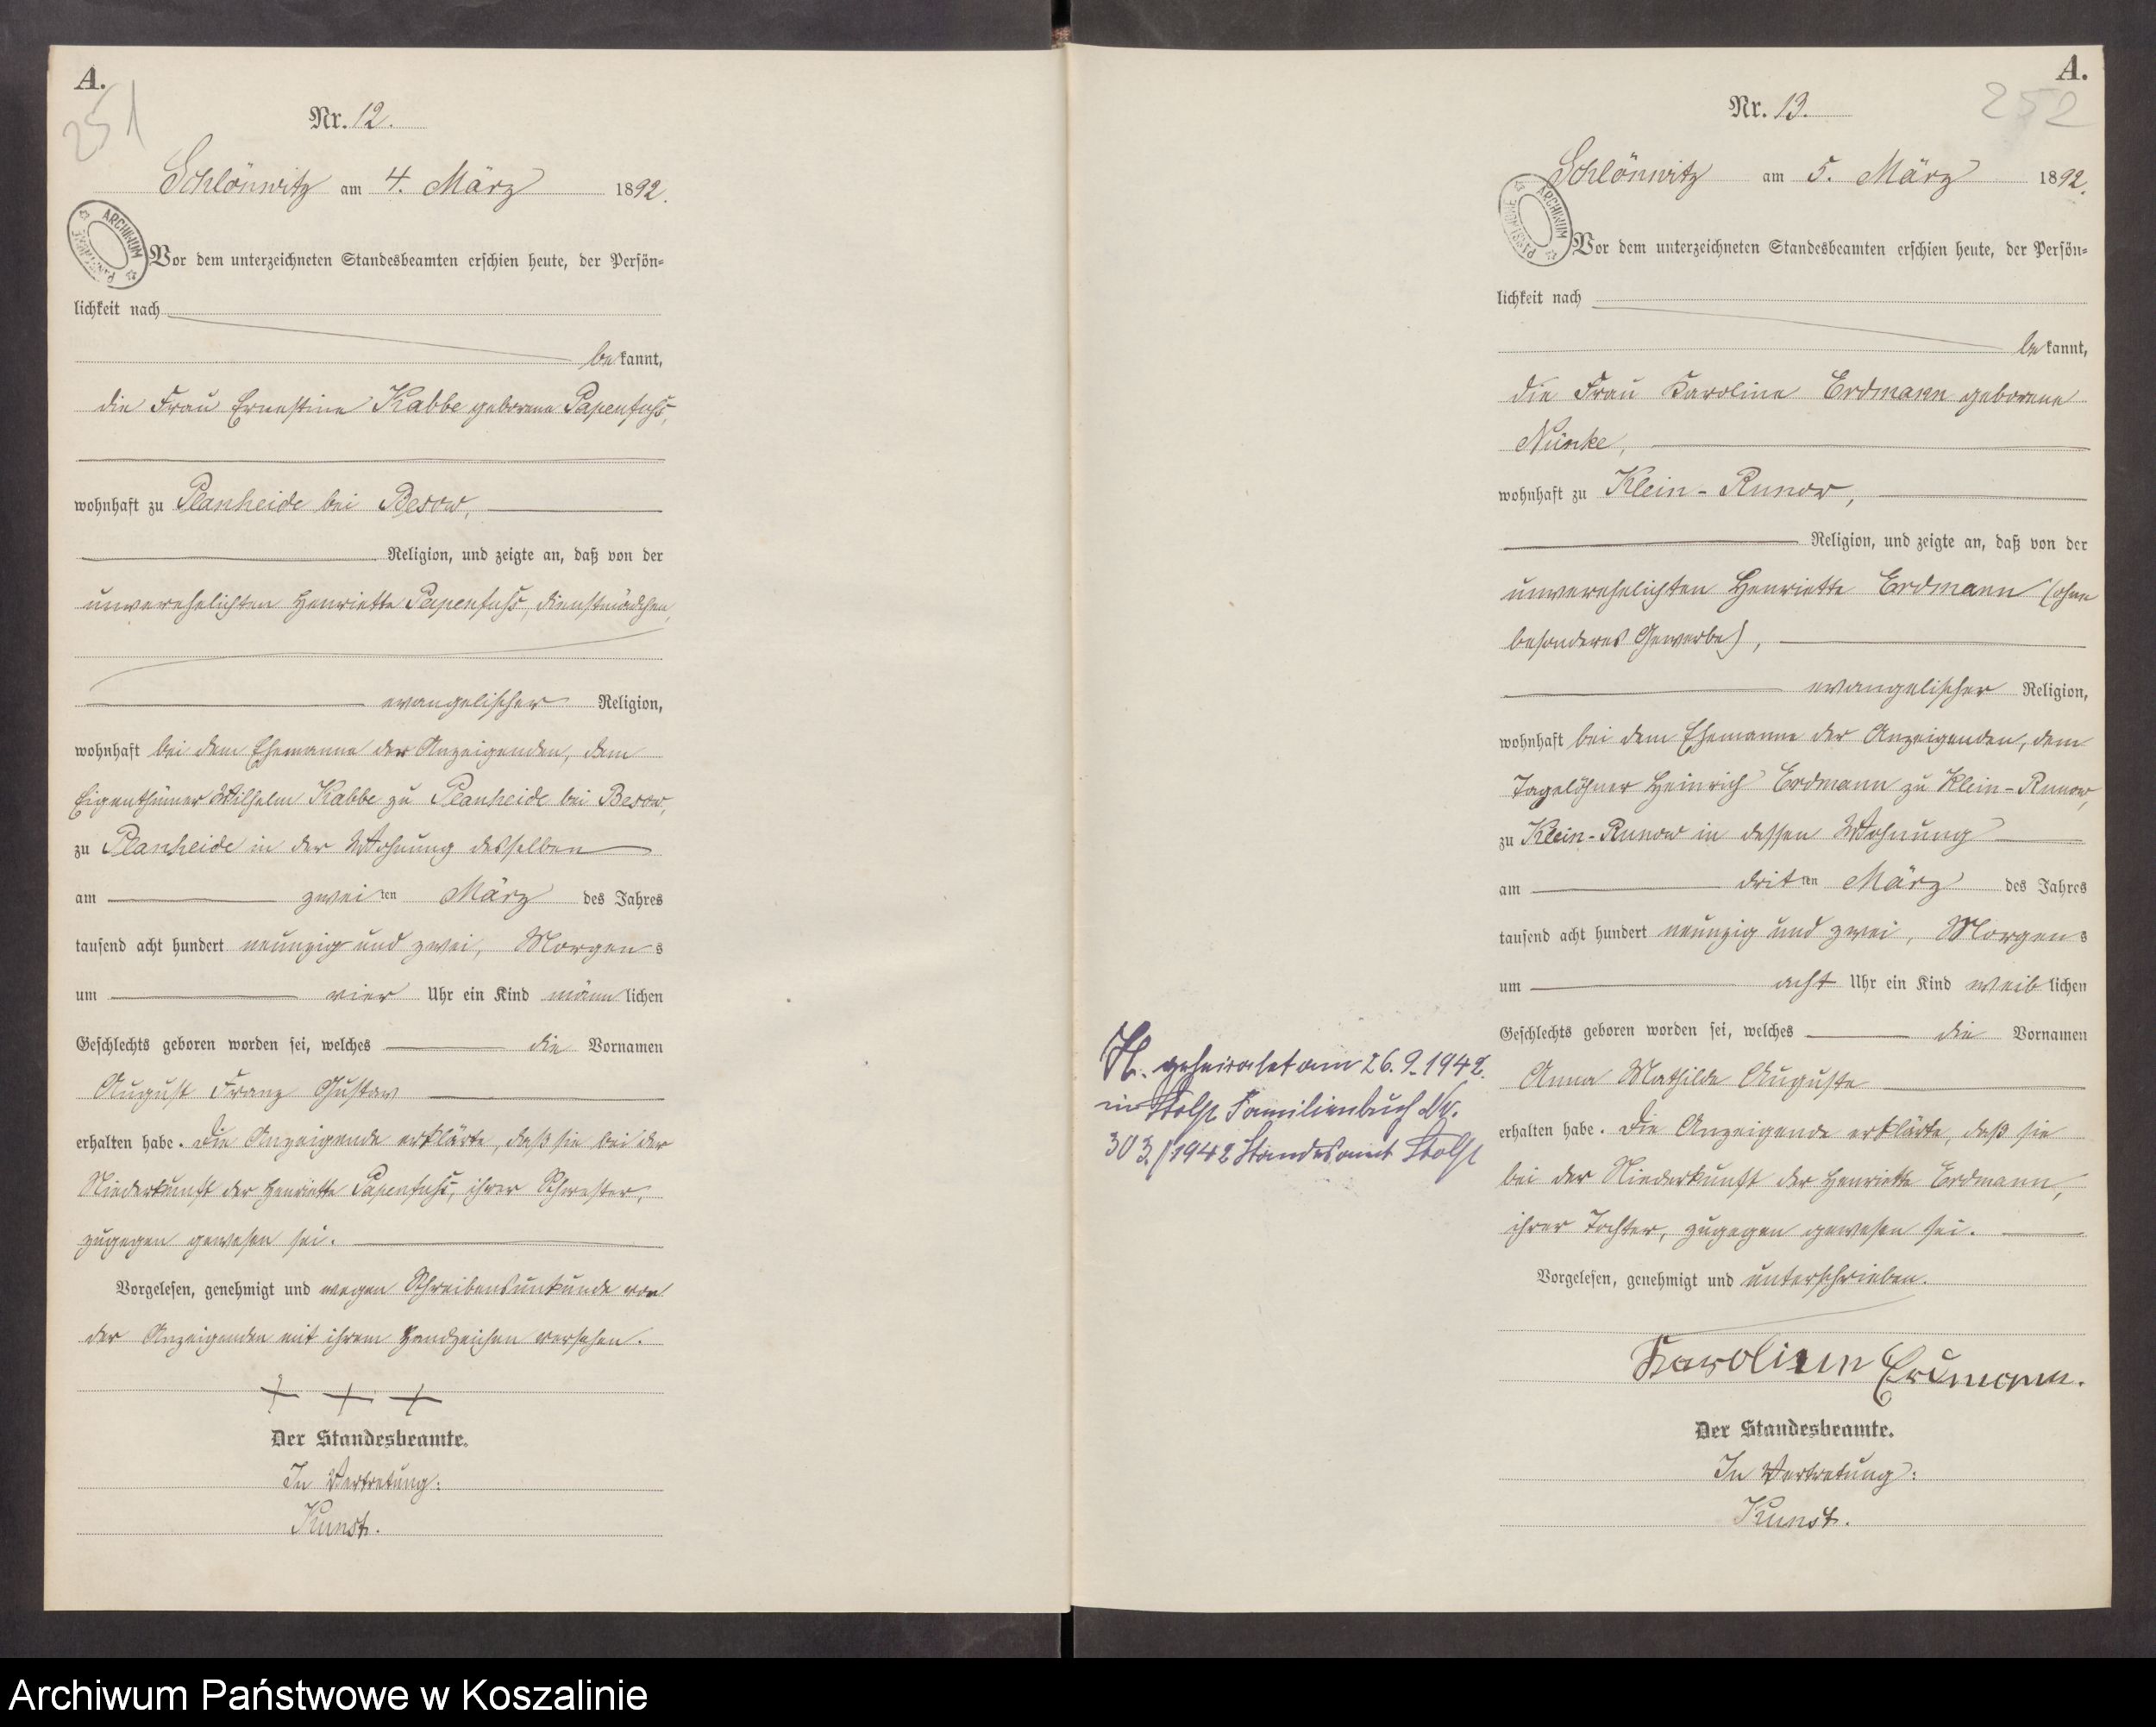 A.
251
Nr. 12.
Schlönwitz am 4. März 1892.
ARCHIWUM PAŃSTWOWE
Vor dem unterzeichneten Standesbeamten erschien heute, der Persön-
lichkeit nach
bekannt,
die Frau Ernestine Kabbe geborene Papenfuß,
wohnhaft zu Planheide bei Besow,
Religion, und zeigte an, daß von der
unverehelichten Henriette Papenfuß, Dienstmädchen,
evangelischer Religion,
wohnhaft bei dem Ehemanne der Anzeigenden, dem
Eigenthümer Wilhelm Kabbe zu Planheide bei Besow,
zu Planheide in der Wohnung desselben
am zweiten März des Jahres
tausend acht hundert neunzig und zwei, Morgens
um vier Uhr ein Kind männlichen
Geschlechts geboren worden sei, welches die Vornamen
August Franz Gustav
erhalten habe. Die Anzeigende erklärte, daß sie bei der
Niederkunft der Henriette Papenfuß, ihrer Schwester,
zugegen gewesen sei.
Vorgelesen, genehmigt und wegen Schreibensunkunde von
der Anzeigenden mit ihrem Handzeichen versehen.
+ + +
Der Standesbeamte.
In Vertretung:
Kunst.
A.
252
Nr. 13.
Schlönwitz am 5. März 1892.
ARCHIWUM PAŃSTWOWE
Vor dem unterzeichneten Standesbeamten erschien heute, der Persön-
lichkeit nach
bekannt,
die Frau Karoline Erdmann geborene
Nünke,
wohnhaft zu Klein-Runow,
Religion, und zeigte an, daß von der
unverehelichten Henriette Erdmann (ohne
besonderes Gewerbe),
evangelischer Religion,
wohnhaft bei dem Ehemanne der Anzeigenden, dem
Tagelöhner Heinrich Erdmann zu Klein-Runow,
zu Klein-Runow in dessen Wohnung
am dritten März des Jahres
tausend acht hundert neunzig und zwei, Morgens
um acht Uhr ein Kind weiblichen
Geschlechts geboren worden sei, welches die Vornamen
Anna Mathilde Auguste
erhalten habe. Die Anzeigende erklärte, daß sie
bei der Niederkunft der Henriette Erdmann,
ihrer Tochter, zugegen gewesen sei.
Vorgelesen, genehmigt und unterschrieben.
Karolinen Erdmann.
Der Standesbeamte.
In Vertretung:
Kunst.
geheiratet am 26.9.1942.
in Stolp Familienbuch Nr.
303./1942 Standesamt Stolp
Archiwum Państwowe w Koszalinie